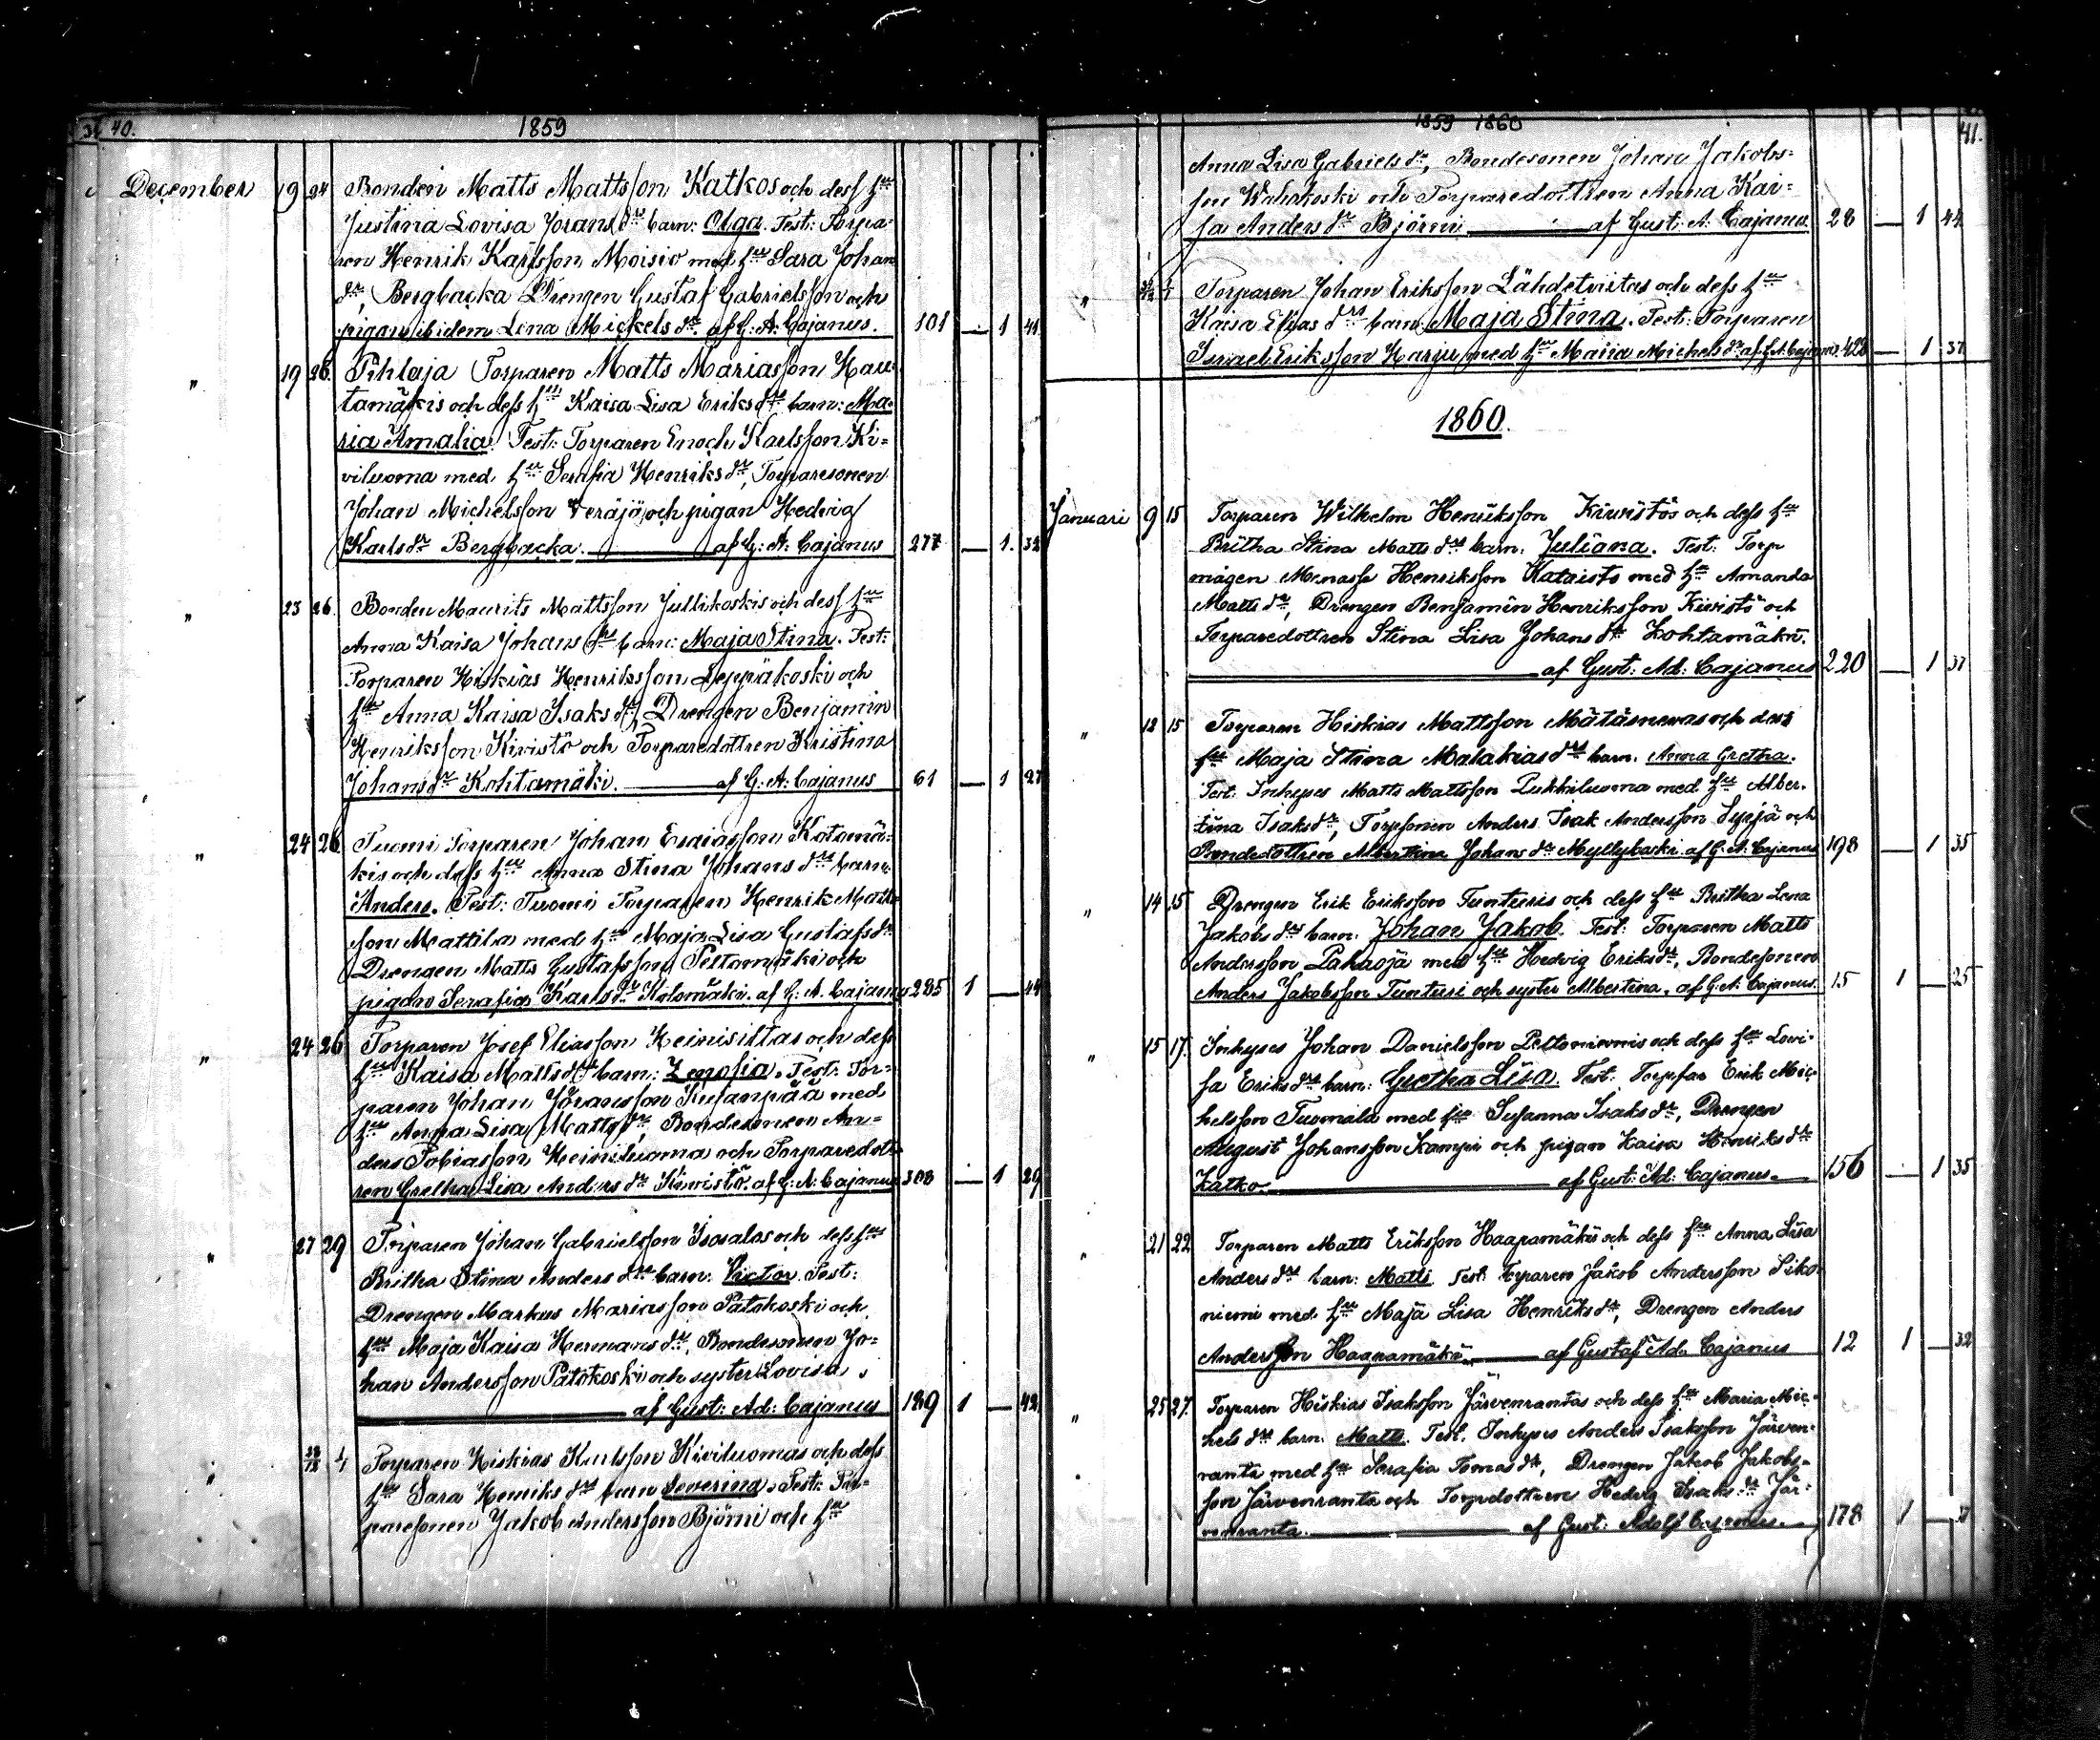 40. 1859
December 19 24 Bonden Matts Mattsson Katkos och dess hu
Justina Lovisa Jorans drs barn: Olga. Test: Torpa-
ren Henrik Karlsson Moisio med hu Sara Johans
dr Bergbacka Drengen Gustaf Gabrielsson och
pigan ibidem Lena Mickels dr. af G: A: Cajanus. 101 — 1 41
" 19 26. Pihlaja Torparen Matts Mariasson Hau-
tamäkis och dess hu Kaisa Lisa Eriks drs barn: Ma-
ria Amalia. Test: Torparen Enoch Karlsson Ki-
viluoma med hu Serafia Henriks dr, Torparesonen
Johan Michelsson Veräjä och pigan Hedvig
Karls dr Bergbacka. — af G: A: Cajanus 277 — 1. 32
" 23 26. Bonden Maurits Mattsson Jyllikoskis och dess hu
Anna Kaisa Johans drs barn: Maja Stina. Test:
Torparen Hiskias Henriksson Leppäkoski och
hu Anna Kaisa Isaks dr, Drengen Benjamin
Henriksson Kivistö och Torparedottren Kristina
Johans dr Kohtamäki. — af G: A: Cajanus 61 — 1 27
" 24 26 Tuomi Torparen Johan Esaiasson Kotomä-
kis och dess hu Anna Stina Johans drs barn:
Anders. Test: Tuomi Torparen Henrik Matts-
son Mattila med hu Maja Lisa Gustafs dr
Drengen Matts Gustafsson Peltomäki och
pigan Serafia Karls dr Kotomäki. af G: A: Cajanus 285 1 — 44
" 24 26 Torparen Josef Eliasson Heinisittas och dess
hu Kaisa Matts drs barn: Zenofia. Test: Tor-
paren Johan Göransson Susanpää med
hu Anna Lisa Matts dr, Bondesonen An-
ders Tobiasson Heiniluoma och Torparedott-
ren Gretha Lisa Anders dr Kiwistö. af G: A: Cajanus 308 — 1 29
" 27 29 Torparen Johan Gabrielsson Isosalos och dess hu
Britha Stina Anders drs barn: Victor. Test:
Drengen Markus Mariasson Patokoski och
hu Maja Kaisa Hermans dr, Bondesonen Jo-
han Andersson Patokoski och syster Lovisa.
— af Gust: Ad: Cajanus 189 1 — 42
" 28/12 1/1 Torparen Hiskias Karlsson Kiviluomas och dess
hu Sara Henriks drs barn Severina. Test: Tor-
paresonen Jakob Andersson Björni och hu
1859 1860 41.
Anna Lisa Gabriels dr, Bondesonen Johan Jakobs-
son och Torparedottren Anna Kai-
sa Anders dr Björni — af Gust: A. Cajanus. 28 — 1 44
" 31/12 1/1 Torparen Johan Eriksson Lähdetvistas och dess hu
Kaisa Elias drs barn: Maja Stina. Test: Torparen
Israel Eriksson Harju med hu Maria Michels dr af G. A. Cajanus 422 — 1 37
1860.
Januari 9 15 Torparen Wilhelm Henriksson Kiwistös och dess hu
Britha Stina Matts drs barn: Juliana. Test: Torp
mågen Menasse Henriksson Kataisto med hu Amanda
Matts dr, Drengen Benjamin Henriksson Kivistö och
Torparedottren Stina Lisa Johans dr Kohtamäki.
— af Gust: Ad: Cajanus 220 — 1 37
" 12 15 Torparen Hiskias Mattsson Mätäsnevas och dess
hu Maja Stina Malakias drs barn. Anna Gretha.
Test: Inhyses Matts Mattsson Pukkiluoma med hu Alber-
tina Isaks dr, Torpsonen Anders Isak Andersson Syrjä och
Bondedottren Albertina Johans dr Myllykoski. af G. A: Cajanus 198 — 1 35
" 14 15 Drengen Erik Eriksson Tunturis och dess hu Britha Lena
Jakobs drs barn: Johan Jakob. Test: Torparen Matts
Andersson Pahaoja med hu Hedvig Eriks dr, Bondesonen
Anders Jakobsson Tunturi och syster Albertina. af G. A. Cajanus. 15 1 — 25
" 15 17. Inhyses Johan Danielsson Peltoniemis och dess hu Lovi-
sa Eriks drs barn: Gretha Lisa. Test: Torpfar Erik Mic-
helsson Tuomala med hu Susanna Isaks dr, Drengen
August Johansson Kampi och pigan Kaisa Henriks dr
Katko. — af Gust: Ad: Cajanus. 156 — 1 35
" 21 22 Torparen Matts Eriksson Haapamäkis och dess hu Anna Lisa
Anders drs barn: Matts. Test: Torparen Jakob Andersson Siko-
niemi med hu Maja Lisa Henriks dr, Drengen Anders
Andersson Haapamäki. — af Gustaf Ad. Cajanus 12 1 — 32
" 25 27. Torparen Hiskias Isaksson Järvenrantas och dess hu Maria Mic-
hels drs barn. Matts. Test. Inhyses Anders Isaksson Järven-
ranta med hu Serafia Tomas dr, Drengen Jakob Jakobs-
son Järvenranta och Torpdottren Hedvig Isaks dr Jär-
venranta. — af Gust: Adolf Cajanus. 178 1 — 37